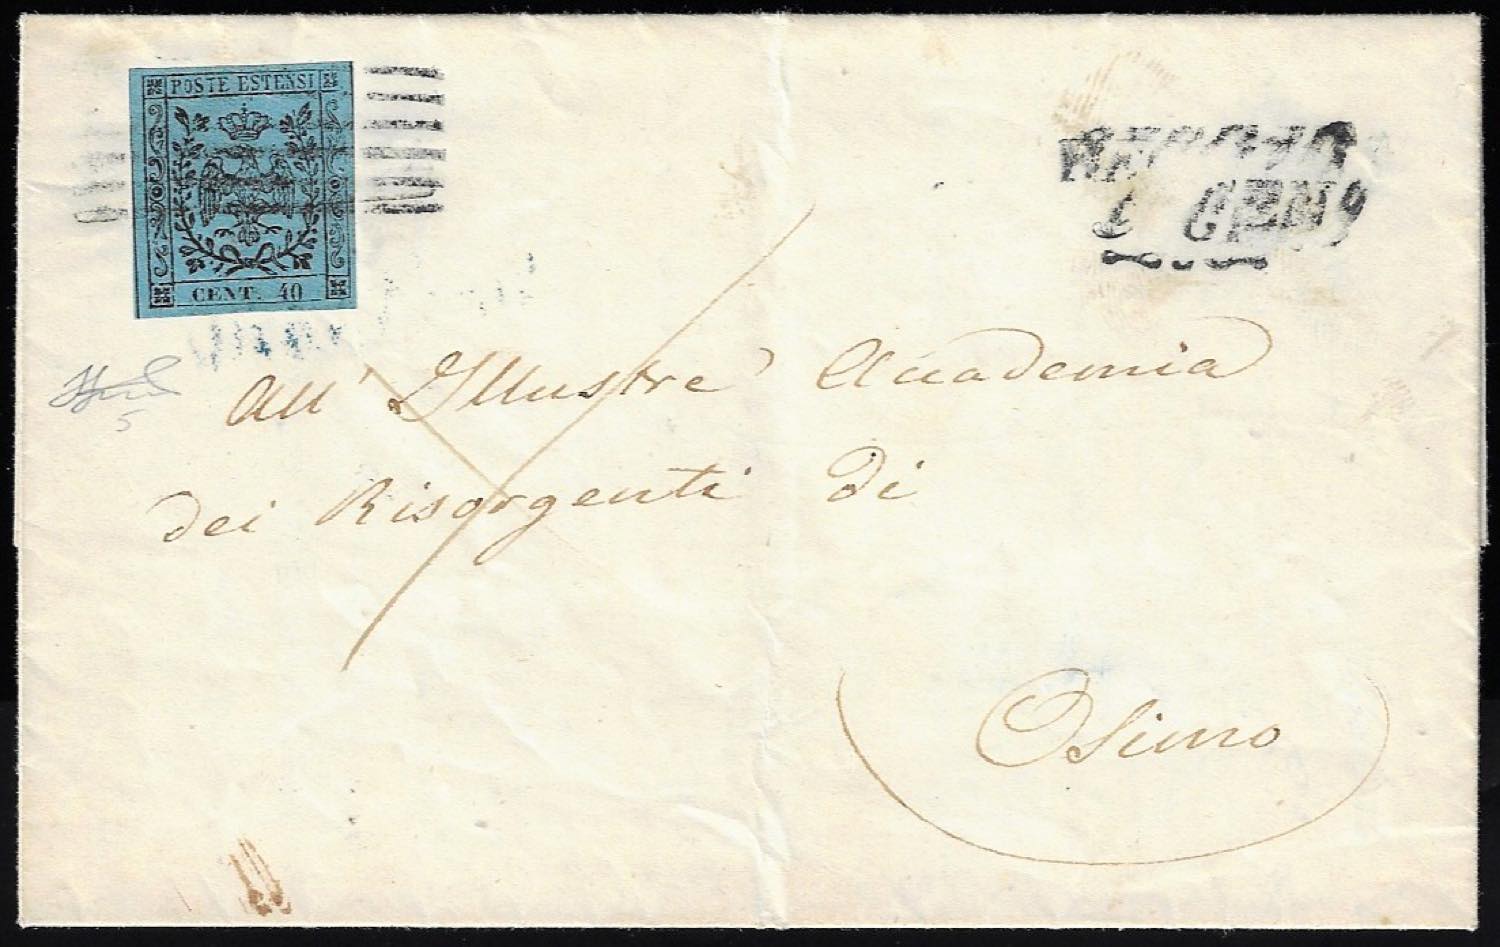 POSTE ESTENSI
CENT. 40
REGGIO
GENN
All' Illustre Accademia
dei Risorgenti di
Osimo
5